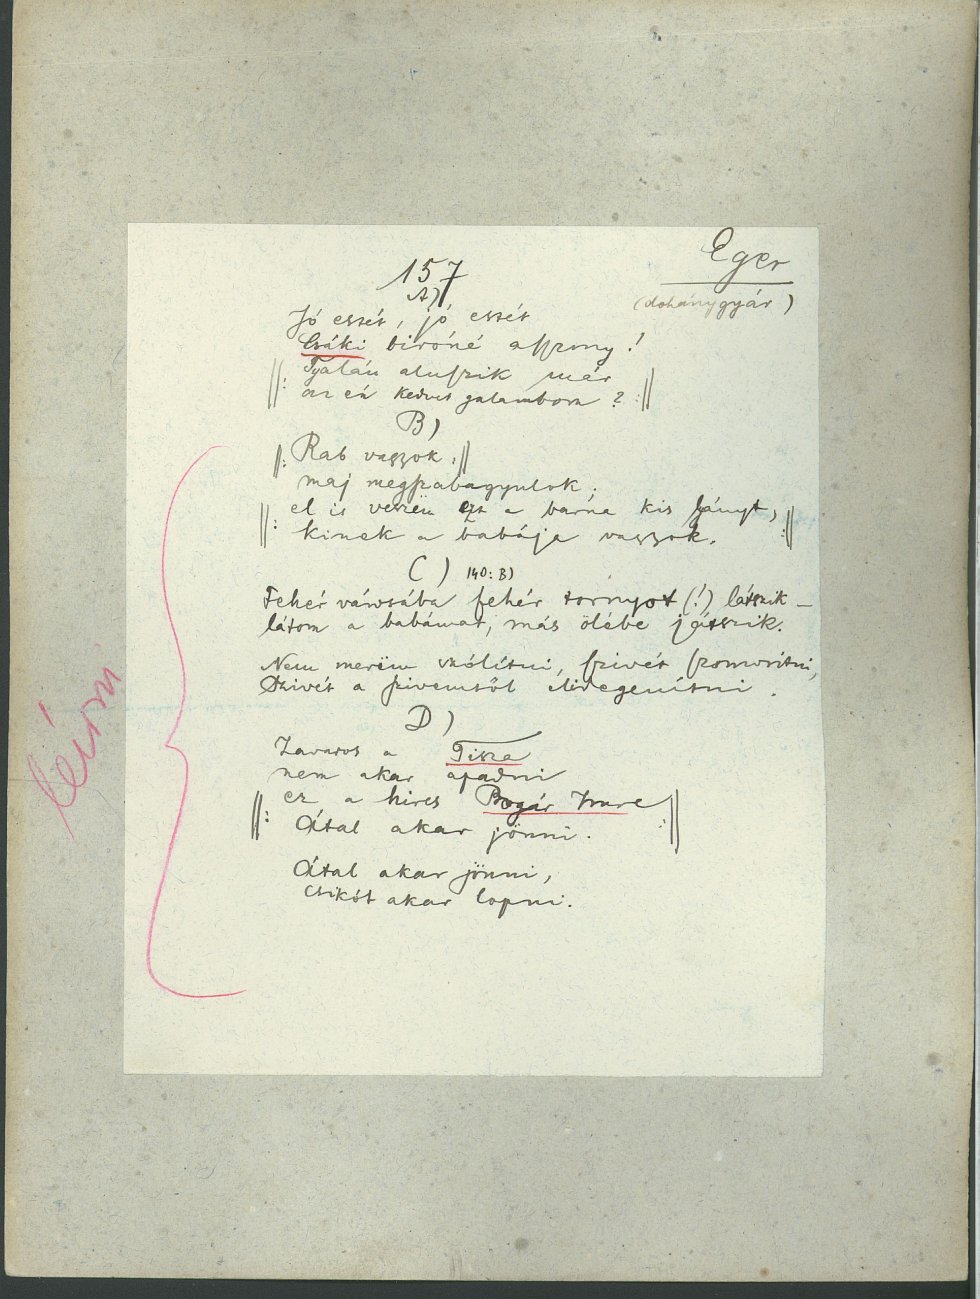 Eger
(dohánygyár)
157
A)
Jó esét, jó esét
Csáki biróné asszony!
||: Tyalán aluszik már
az én kedves galambom? :||
B)
||: Rab vagyok, :||
maj megszabagyulok,
||: el is veszëm ezt a barna kis lányt,
kinek a babája vagyok. :||
C) 140: B)
Fehér városába fehér tornyot (!) látszik –
látom a babámat, más ölébe játszik.
Nem merëm szólítni, szivét szomorítni,
Szivét a szivemtől elidegenítni.
D)
Zavaros a Tisza
nem akar apadni
||: ez a hires Bogár Imre
Által akar jönni. :||
Által akar jönni,
Csikót akar lopni.
leírni